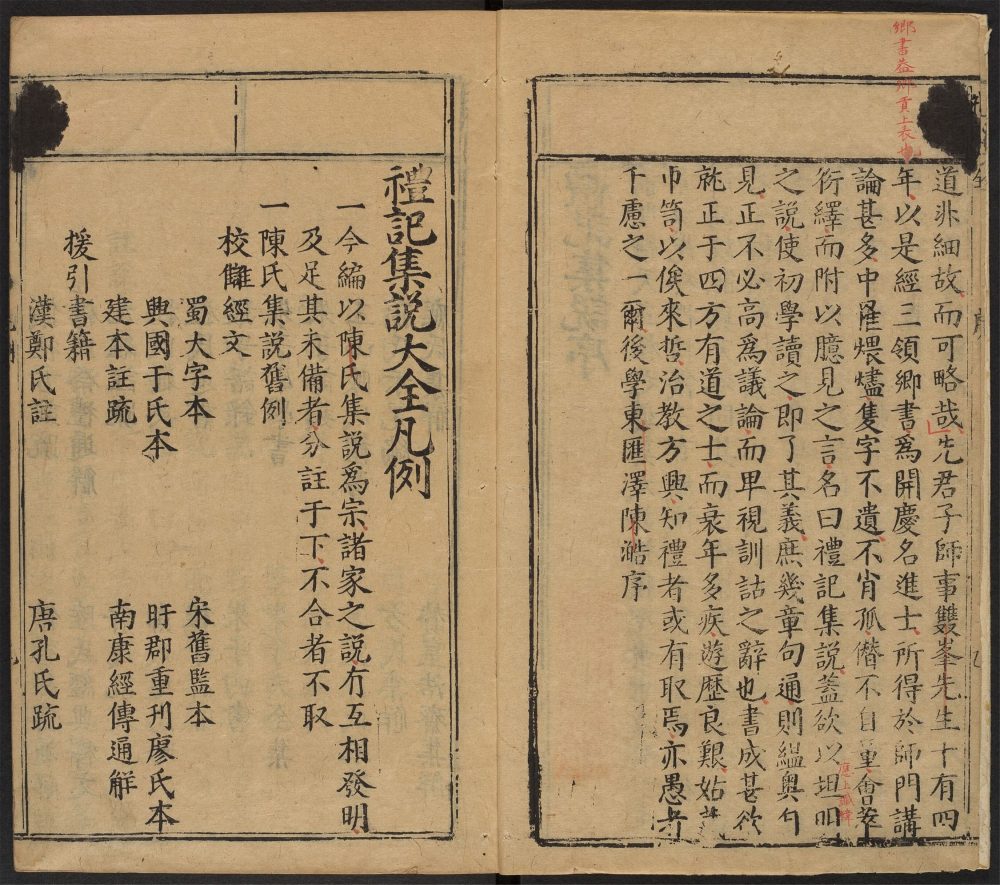 道非細故而可略哉先君子師事雙峯先生十有四
年以是經三領鄉書爲開慶名進士所得於師門講
論甚多中罹煨燼隻字不遺不肖孤僭不自量會萃
衍繹而附以臆見之言名曰禮記集説蓋欲以坦明
之説使初學讀之即了其義庶幾章句通則緼奧自
見正不必高爲議論而卑視訓詁之辭也書成甚欲
就正于四方有道之士而衰年多疾遊歷良艱姑
巾笥以俟來哲治教方興知禮者或有取焉亦愚者
千慮之一爾後學東匯澤陳澔序
禮記集説大全凡例
一今編以陳氏集説爲宗諸家之説有互相發明
及足其未備者分註于下不合者不取
一陳氏集説舊例
校讎經文
蜀大字本 宋舊監本
興國于氏本 盱郡重刊廖氏本
建本註疏 南康經傳通解
援引書籍
漢鄭氏註 唐孔氏疏